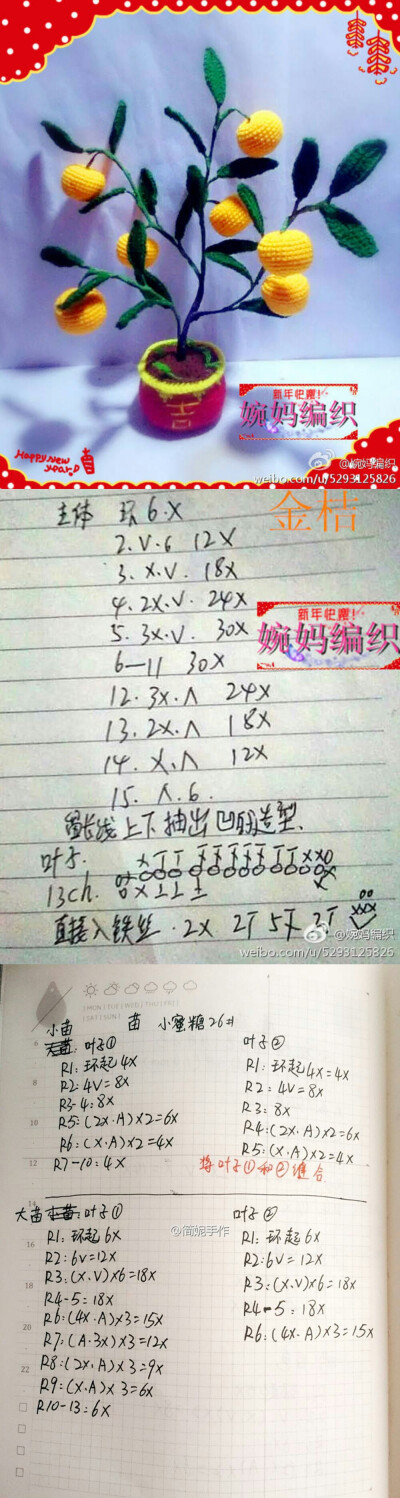 新年快乐!
婉妈编织
Happy new year:D
@婉妈编织
weibo.com/u/5293125826
金桔
主体 环 6.X
2.V.6 12X
3.X.V. 18X
4.2X.V. 24X
5.3X.V. 30X
6—11 30X
新年快乐!
婉妈编织
12.3X.Λ 24X
13.2X.Λ 18X
14.X.Λ 12X
15.Λ.6.
留长线上下抽出凹的造型.
叶子.
13ch.
直接入铁丝.2X 2T 5 2T
@婉妈编织
weibo.com/u/5293125826
MON TUE WED THU FRI
SAT SUN
小苗 苗 小蜜糖26#
叶子① 叶子②
R1:环起4X R1:环起4X=4X
R2:4V=8X R2:4V=8X
R3-4:8X R3:8X
R5:(2X.A)X2=6X R4:(2X.A)X2=6X
R6:(X.A)X2=4X R5:(X.A)X2=4X
R7-10:4X 将叶子①和②缝合
大苗 叶子① 叶子②
@简妮手作
R1:环起6X R1:环起6X
R2:6V=12X R2:6V=12X
R3:(X.V)X6=18X R3:(X.V)X6=18X
R4-5:18X R4-5:18X
R6:(4X.A)X3=15X R6:(4X.A)X3=15X
R7:(A.3X)X3=12X
R8:(2X.A)X3=9X
R9:(X.A)X3=6X
R10-13:6X